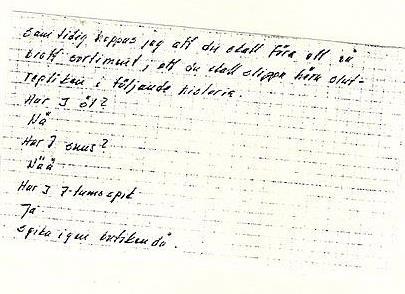 Samtidig hoppas jag att du skall föra ett så
brett sortiment, att du skall slippa höra slut-
repliken i följande historia.
Har I öl?
Nä
Har I snus?
Nää
Har I 7-tums spik
Ja
Spika igen butiken då.